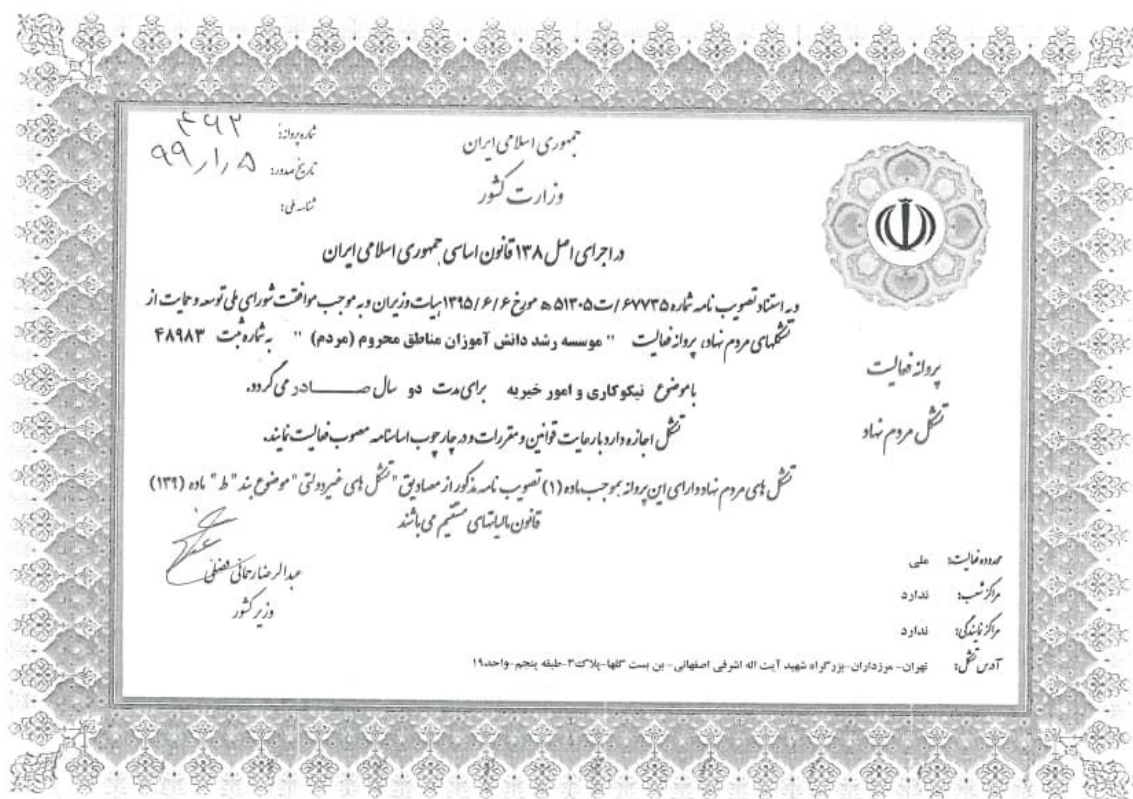 جمهوری اسلامی ایران
وزارت کشور
شماره پروانه: ۴۹۲
تاریخ صدور: ۹۹/۱/۵
شناسه ملی:
در اجرای اصل ۱۳۸ قانون اساسی جمهوری اسلامی ایران
و به استناد تصویب نامه شماره ۶۷۷۳۵/ت۵۱۳۰۵ ه مورخ ۱۳۹۵/۶/۶ هیات وزیران و به موجب موافقت شورای ملی توسعه و حمایت از
تشکلهای مردم نهاد، پروانه فعالیت " موسسه رشد دانش آموزان مناطق محروم (مردم) " به شماره ثبت ۴۸۹۸۳
باموضوع نیکوکاری و امور خیریه برای مدت دو سال صـــــادر می گردد.
تشکل اجازه دارد بارعایت قوانین و مقررات و در چارچوب اساسنامه مصوب فعالیت نمایند.
تشکل های مردم نهاد دارای این پروانه بموجب ماده (۱) تصویب نامه مذکور از مصادیق "تشکل های غیردولتی" موضوع بند "ط" ماده (۱۳۹)
قانون مالیاتهای مستقیم می باشند
عبدالرضا رحمانی فضلی
وزیر کشور
پروانه فعالیت
تشکل مردم نهاد
محدوده فعالیت: ملی
مراکز شعب: ندارد
مراکز نمایندگی: ندارد
آدرس تشکل: تهران- مرزداران-بزرگراه شهید آیت اله اشرفی اصفهانی- بن بست گلها-پلاک۳-طبقه پنجم-واحد۱۹